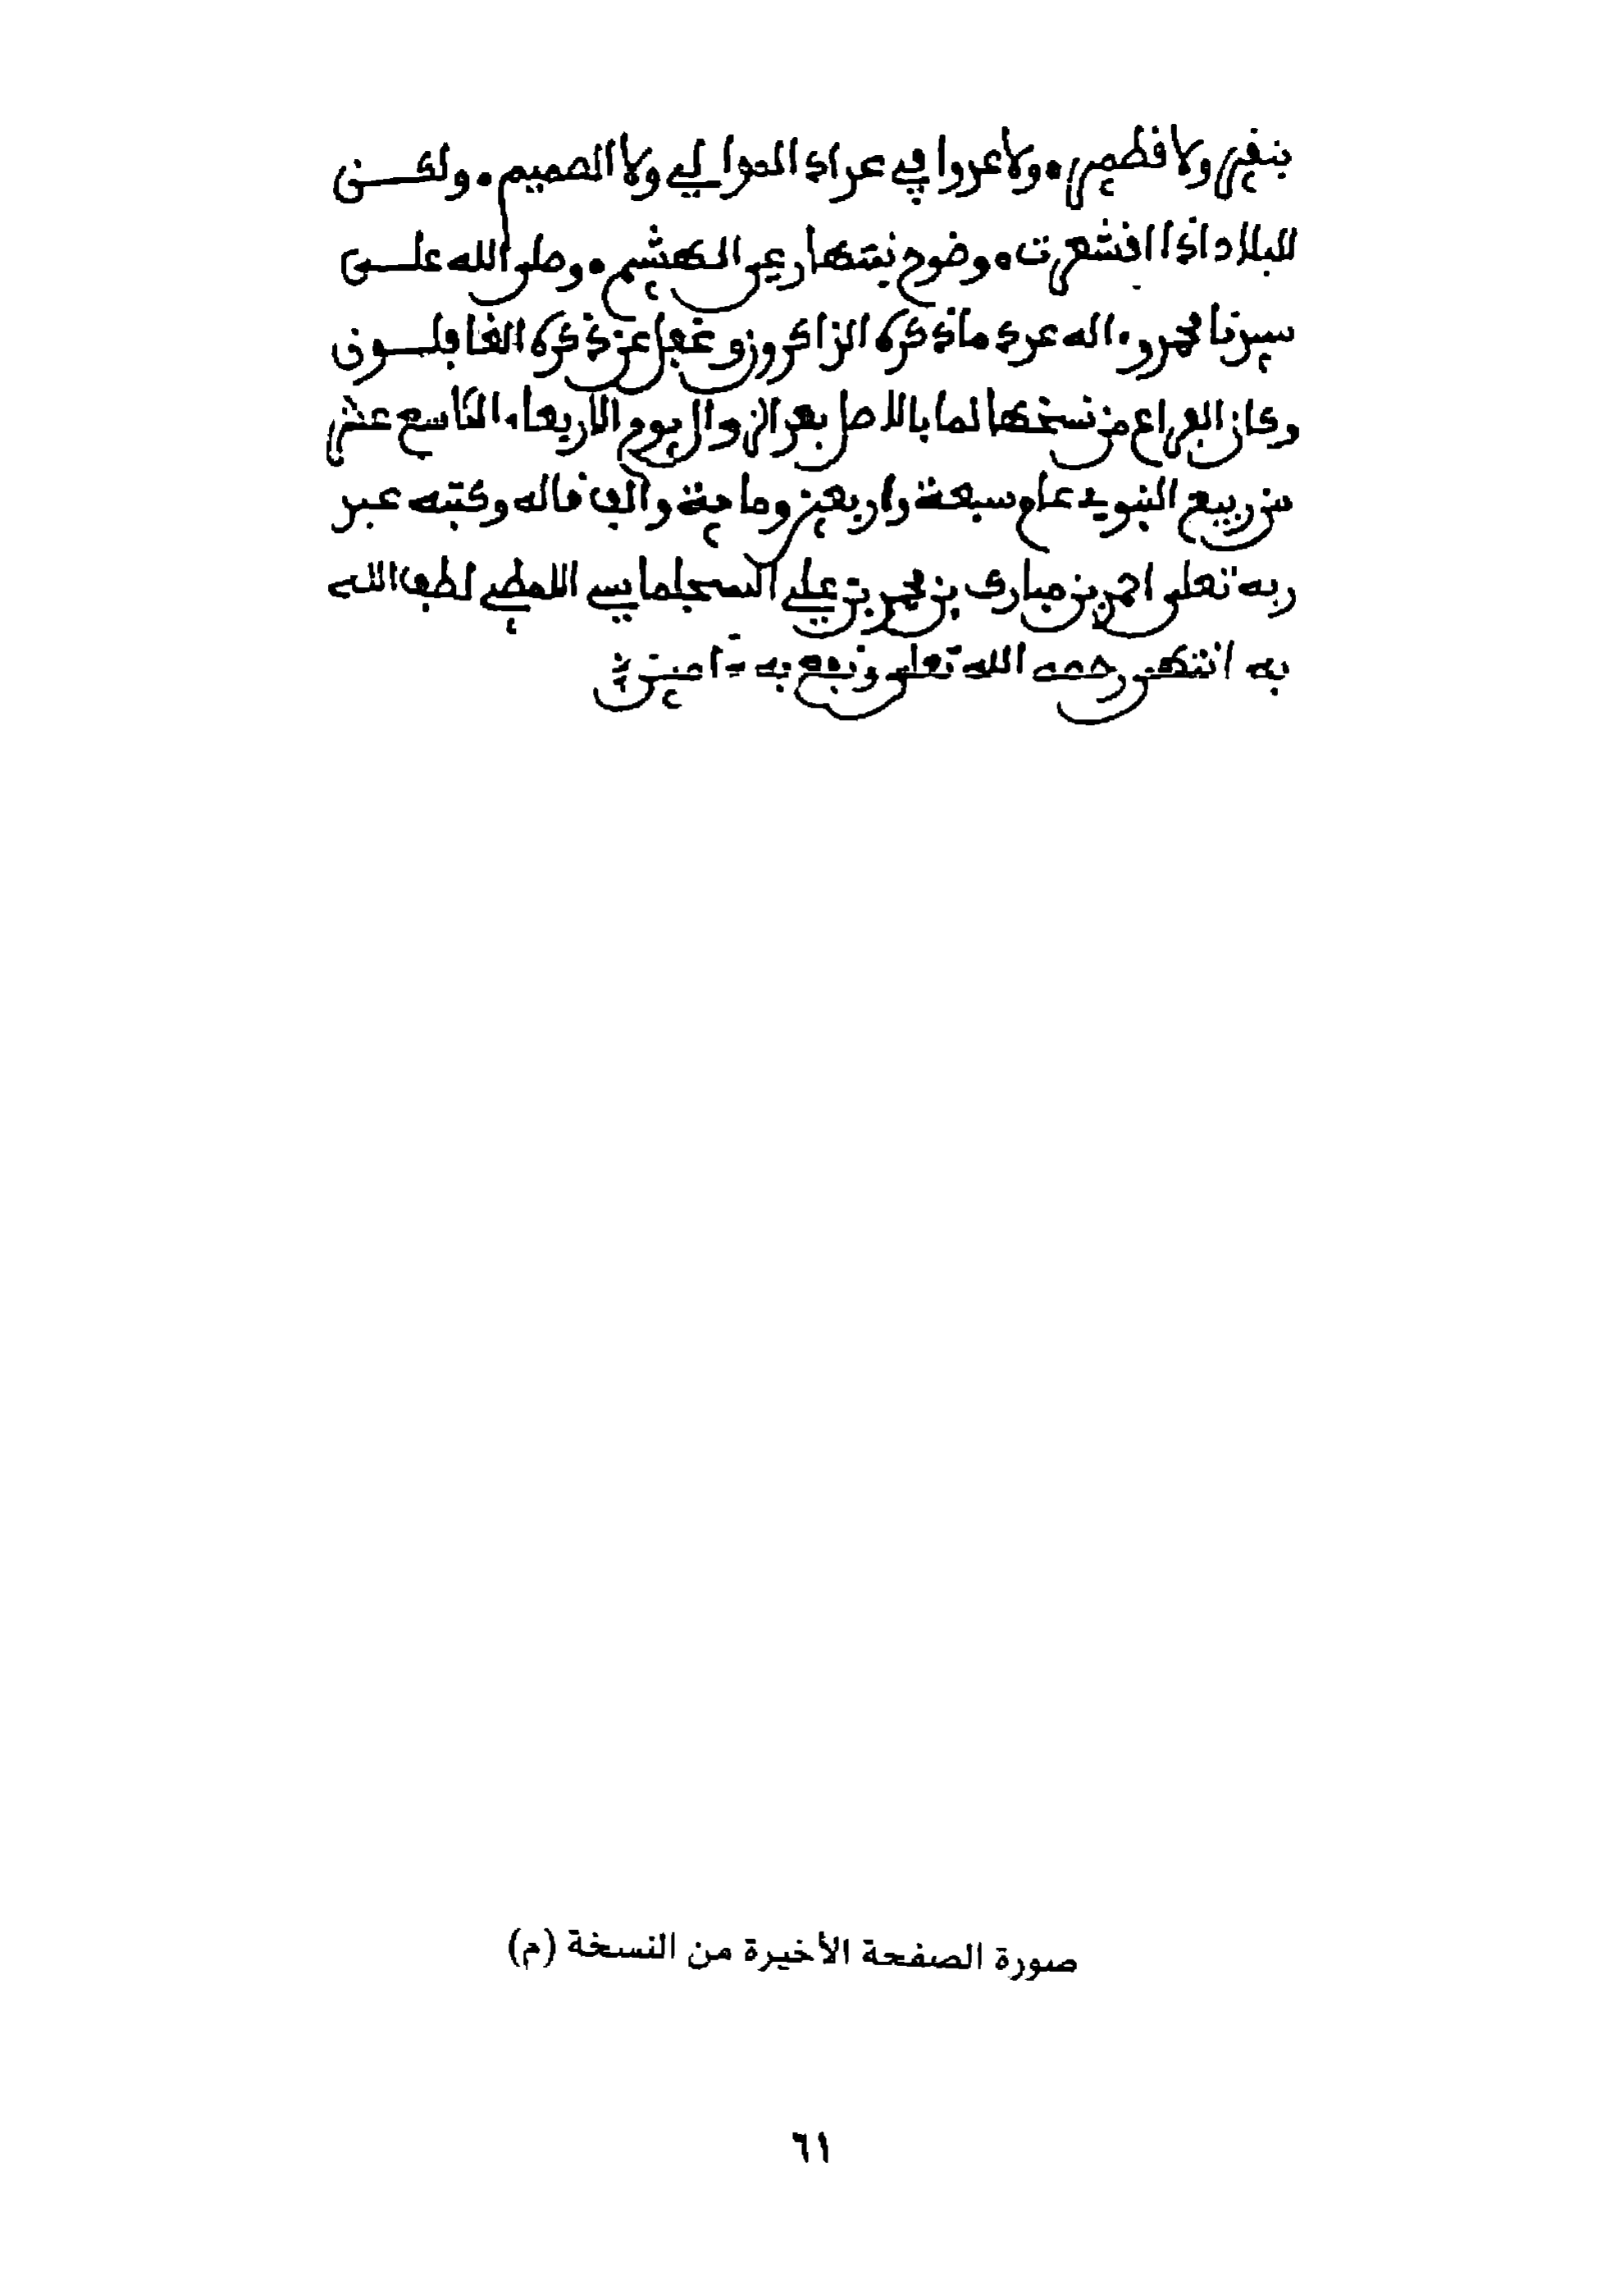 بنفير ولا قطمير . ولا عدوا في عداد الموالي ولا الصميم . ولكـــن
البلاد اذا اقشعرت . وضوح نبتها رعي الهشيم . وصلى الله علـــى
سيدنا محمد وءاله عدد ما ذكره الذاكرون وغفل عن ذكره الغافلـــون
وكان الفراغ من نسخها لما بالاصل بعد الزوال يوم الاربعاء التاسع عشر
من ربيع النبوي عام سبعة واربعين ومائة والف قاله وكتبه عبد
ربه تعلى احمد بن مبارك بن محمد بن علي السجلماسي اللمطي لطف الله
به انتهى رحمه الله تعلى ونفع به ءامين
صورة الصفحة الأخيرة من النسخة (م)
٦١